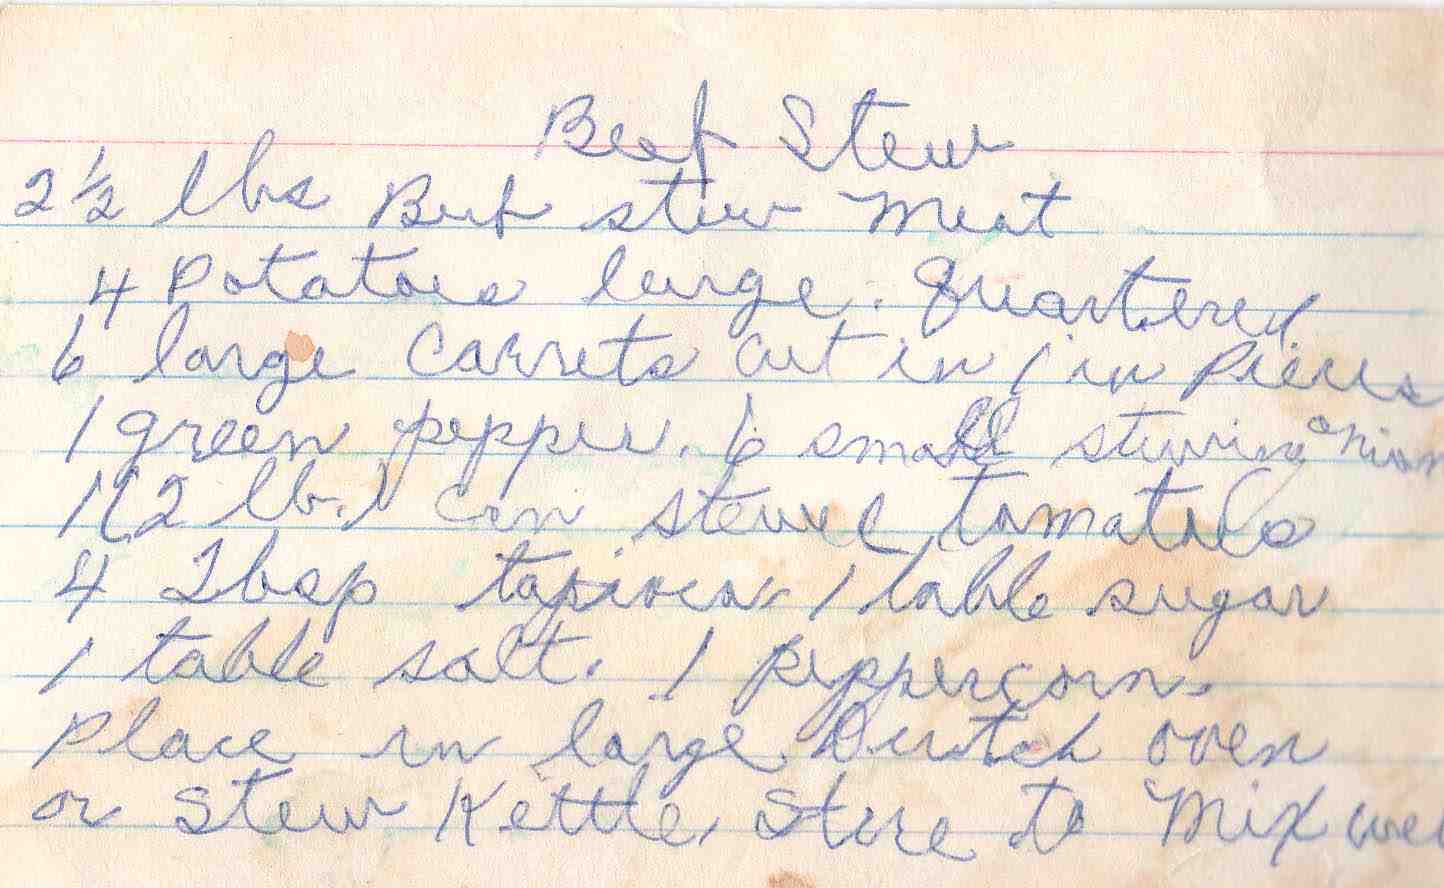 Beef Stew
2 ½ lbs Beef stew meat
4 Potatoes large. Quartered
6 large Carrets cut in 1 in Pieces
1 green pepper. 6 small stewing onion
1 (2 lb.) can stewed tomatoes
4 Tbsp tapioca - 1 table sugar
1 table salt. 1 peppercorn.
Place in large Dutch oven
or Stew Kettle, Stire to Mix wel